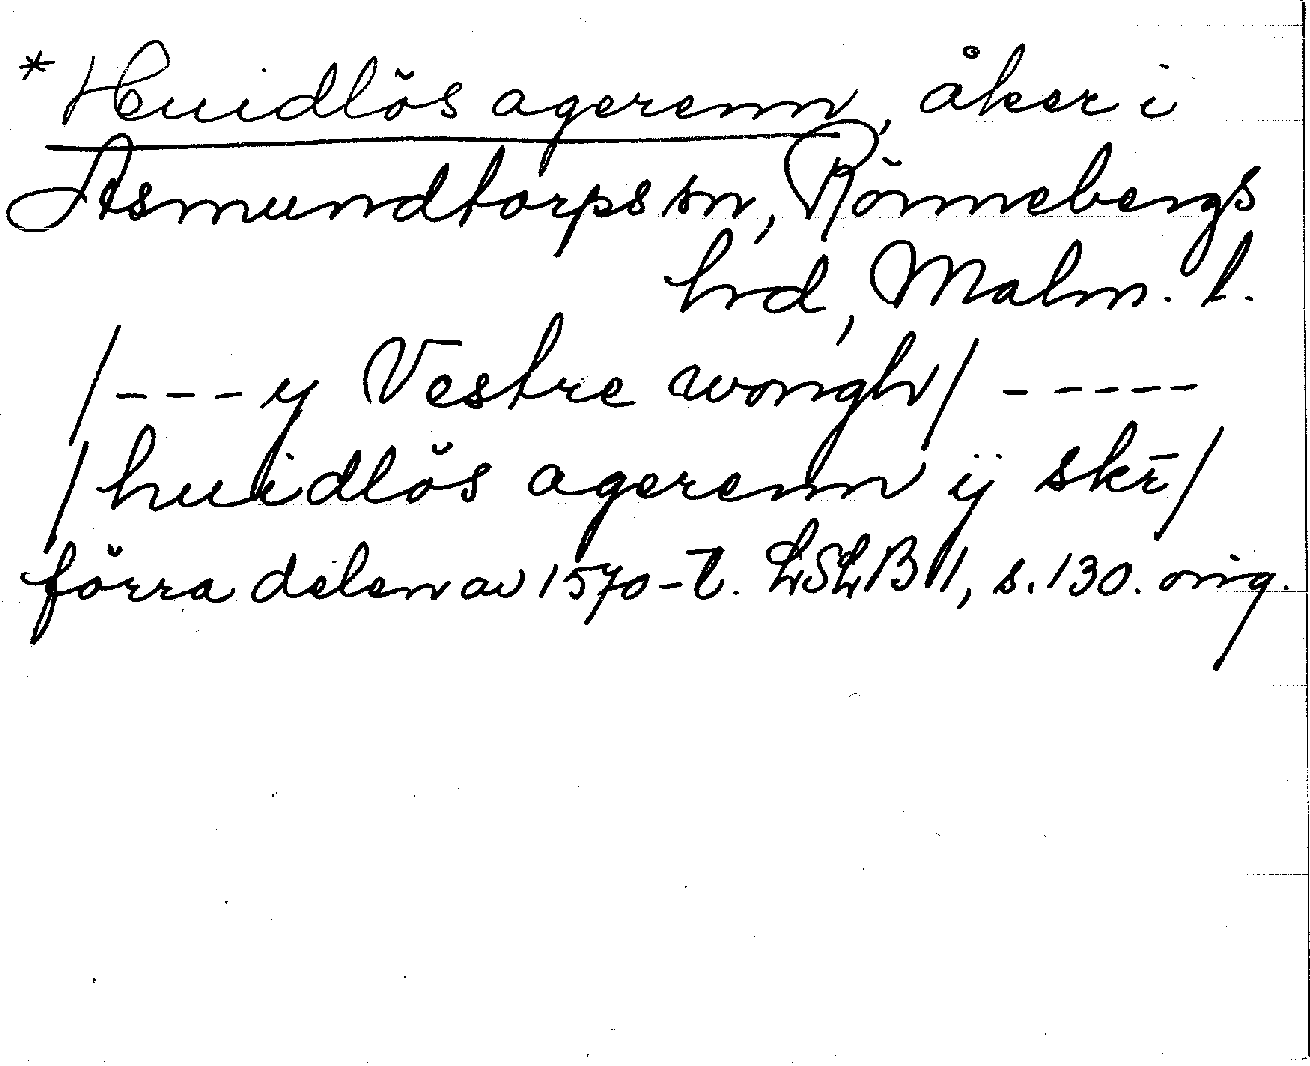 *Huidlös agerenn, åker i
Asmundtorps sn, Rönnebergs
hrd, Malm. l.
/---y Vestre wongh/ -----
/huidlös agerenn ij skr̄/
förra delen av 1570-t. LSLB II, s. 130. orig.